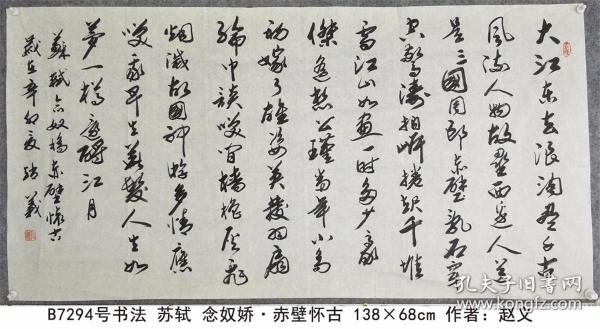 大江东去浪淘尽千古
风流人物故垒西边人道
是三國周郎赤壁乱石穿
空惊涛拍岸捲起千堆
雪江山如画一时多少豪
傑遥想公瑾当年小乔
初嫁了雄姿英發羽扇
纶巾談笑间樯橹灰飛
烟滅故國神游多情應
笑我早生華髮人生如
夢一樽還酹江月
蘇軾念奴橋赤壁怀古
歲在辛卯夏 義
孔夫子旧书网
B7294号书法 苏轼 念奴娇·赤壁怀古 138×68cm 作者：赵义